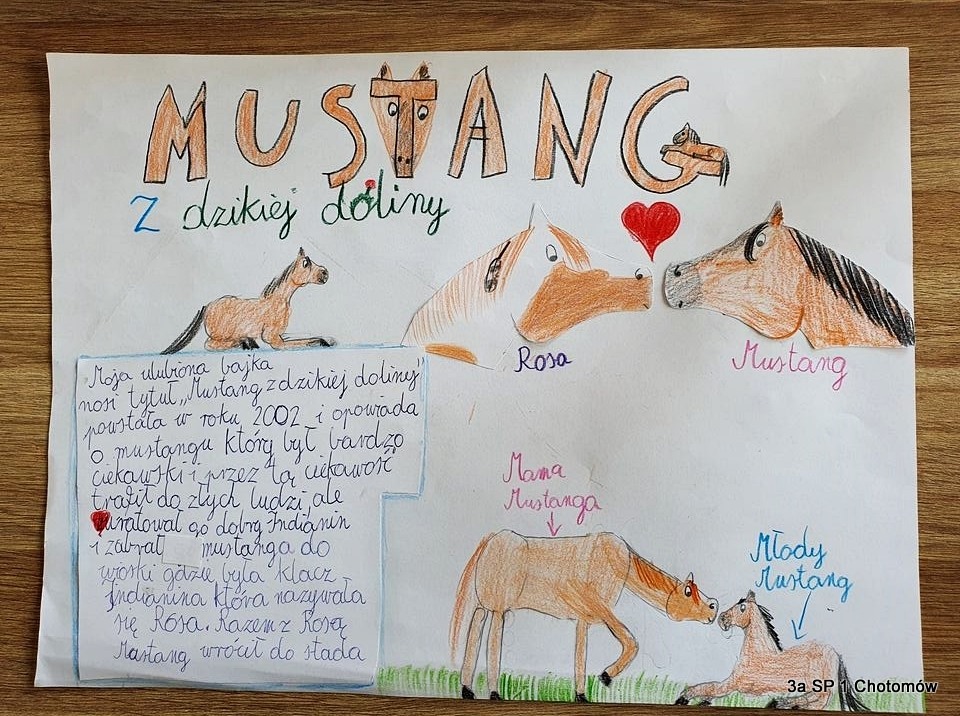 MUSTANG
Z dzikiej doliny
Rosa
Mustang
Moja ulubiona bajka
nosi tytuł „Mustang z dzikiej doliny"
powstała w roku 2002 i opowiada
o mustangu który był bardzo
ciekawski i przez tą ciekawość
trafił do złych ludzi, ale
uratował go dobry Indianin
i zabrał mustanga do
wioski gdzie była klacz
Indianina która nazywała
się Rosa. Razem z Rosą
Mustang wrócił do stada
Mama
Mustanga
Młody
Mustang
3a SP 1 Chotomów